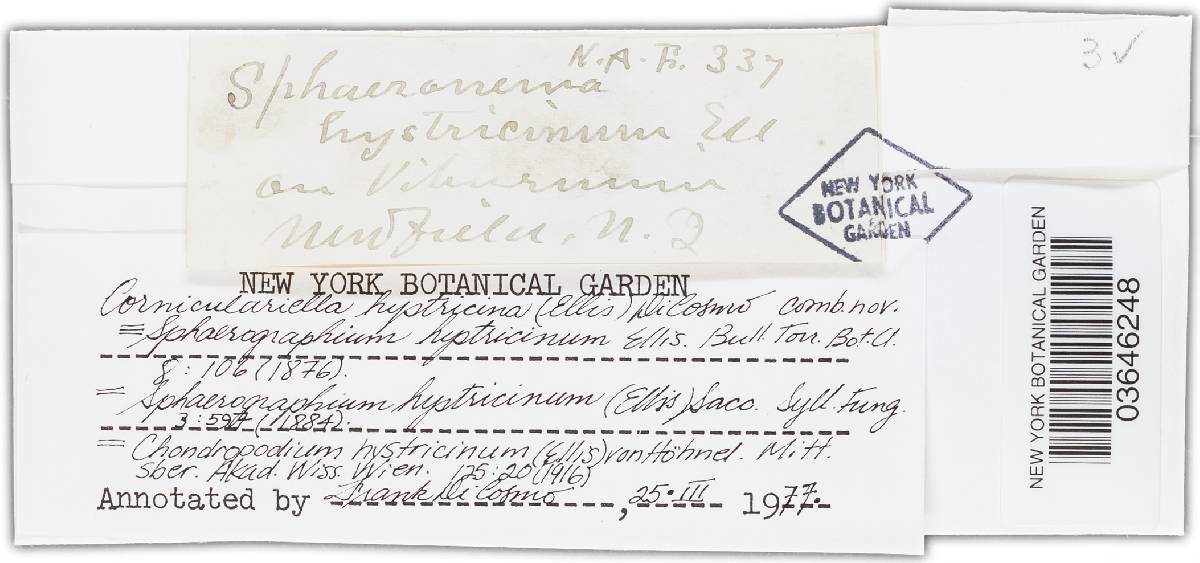 N.A.F. 337
Sphaeronema
hystricinum Ell
on Viburnum
Newfield, N. J
3 ✓
NEW YORK
BOTANICAL
GARDEN
NEW YORK BOTANICAL GARDEN
Corniculariella hystricina (Ellis) DiCosmo comb. nov.
= Sphaerographium hystricinum Ellis. Bull. Torr. Bot. Cl.
8: 106 (1876).
= Sphaerographium hystricinum (Ellis) Sacc. Syll. Fung.
3: 597 (1884).
= Chondropodium hystricinum (Ellis) von Höhnel. Mitt.
sber. Akad. Wiss. Wien. 125: 20 (1916)
Annotated by Frank DiCosmo, 25·III 1977.
NEW YORK BOTANICAL GARDEN
03646248